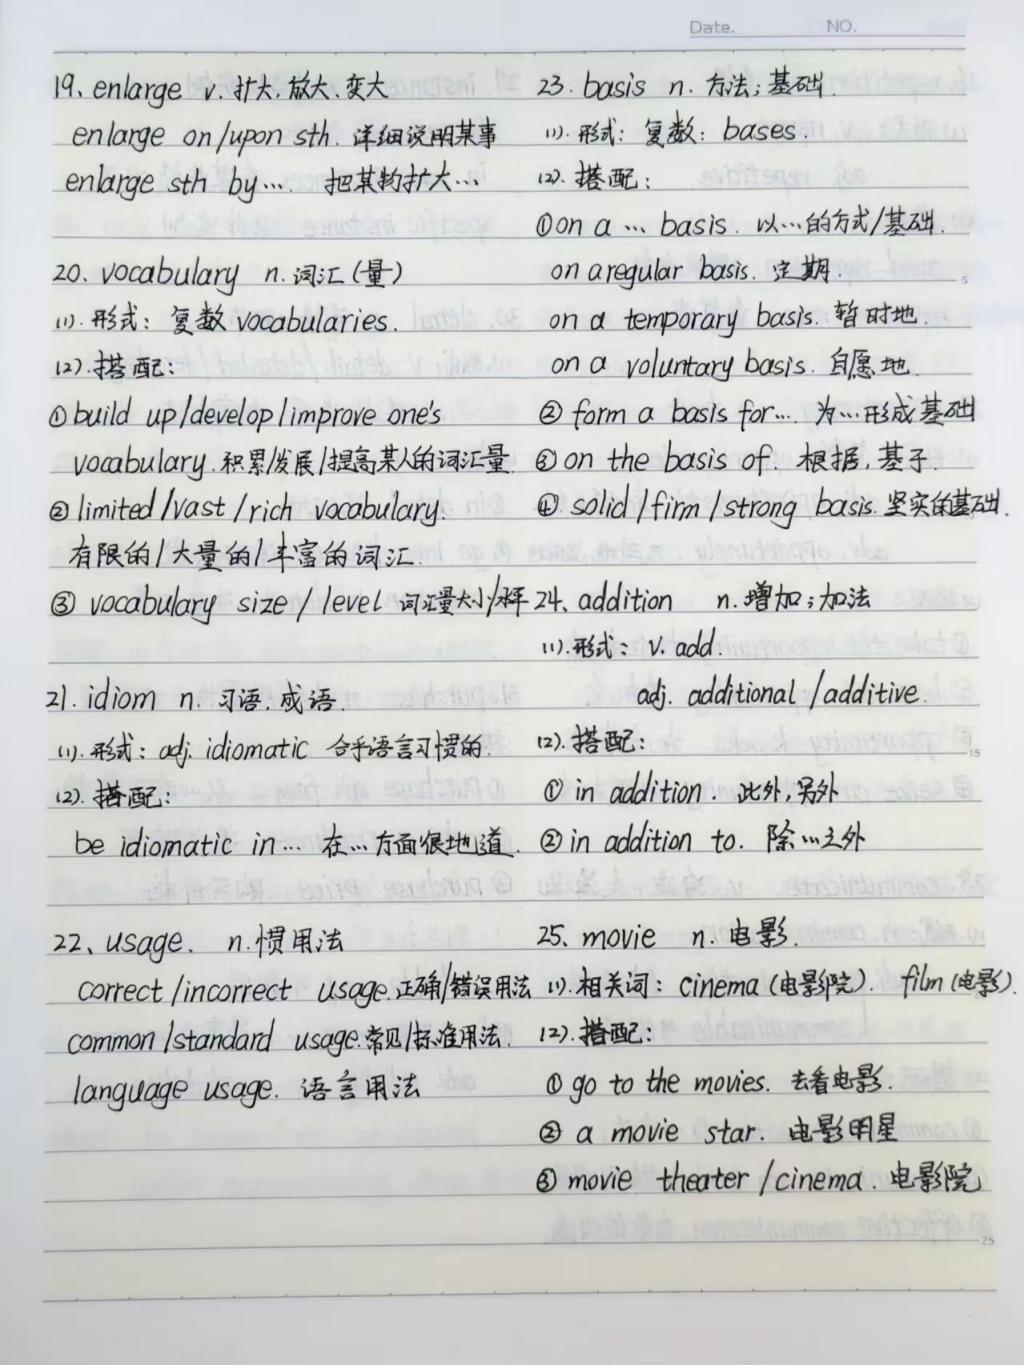 Date. NO.
19、enlarge v. 扩大,放大,变大
enlarge on/upon sth. 详细说明某事
enlarge sth by… 把某物扩大…
20. vocabulary n. 词汇(量)
(1). 形式: 复数 vocabularies.
(2). 搭配:
①build up/develop/improve one's
vocabulary. 积累/发展/提高某人的词汇量.
②limited/vast/rich vocabulary.
有限的/大量的/丰富的词汇.
③ vocabulary size / level 词汇量大小/水平
21. idiom n. 习语,成语.
(1). 形式: adj. idiomatic 合乎语言习惯的.
(2). 搭配:
be idiomatic in… 在…方面很地道.
22、usage. n. 惯用法
correct/incorrect usage. 正确/错误用法
common/standard usage. 常见/标准用法.
language usage. 语言用法
23. basis n. 方法;基础.
(1). 形式: 复数: bases.
(2). 搭配:
①on a … basis. 以…的方式/基础.
on aregular basis. 定期.
on a temporary basis. 暂时地.
on a voluntary basis. 自愿地.
② form a basis for…. 为…形成基础
③on the basis of. 根据,基于.
④. solid/firm/strong basis. 坚实的基础.
24、addition n. 增加;加法
(1). 形式: v. add.
adj. additional/additive.
(2). 搭配:
① in addition. 此外,另外
②in addition to. 除…之外
25、movie n. 电影.
(1). 相关词: cinema (电影院). film (电影).
(2). 搭配:
① go to the movies. 去看电影.
② a movie star. 电影明星
③ movie theater/cinema. 电影院